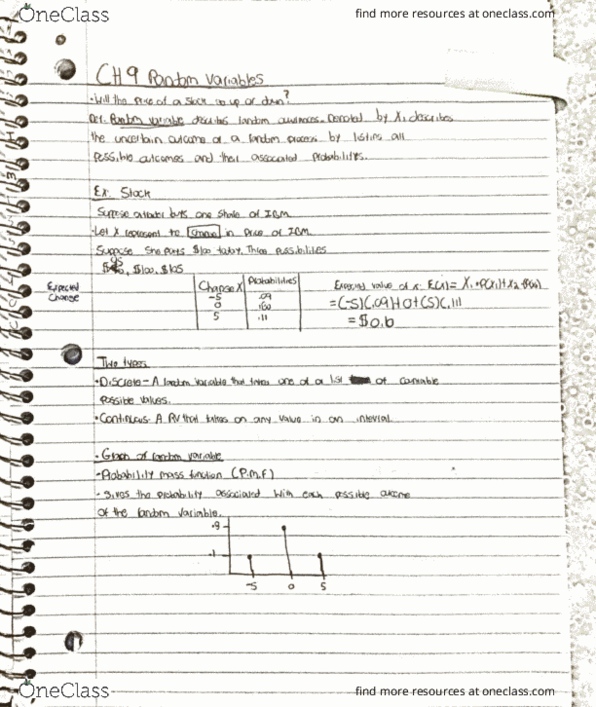 OneClass
find more resources at oneclass.com
CH 9 Random Variables
- Will the Price of a Stock go up or down?
Def. Random variable describes random . Denoted by X, describes
the uncertain outcome of a random process by listing all
Possible outcomes and their associated Probabilities.
Ex. Stock
Suppose a trader buys one Share of IBM
- Let X represent to change in Price of IBM
Suppose She pays $100 today. Three Possibilities
95
$ , $100, $105
Expected
Change
Change X Probabilities
-5 .09
0 .80
5 .11
Expected value of x: E(x) = X1·P(X1)+X2·
=(-5)(.09)+0+(5)(.11)
=$0.10
Two types
• Discrete - A random variable that takes one of a list of countable
Possible Values.
• Continuous - A RV that takes on any value in an interval
• Graph of random variable
- Probability mass function (P.m.f)
- gives the probability associated with each possible outcome
of the random variable.
.9
.1
-5 0 5
OneClass
find more resources at oneclass.com